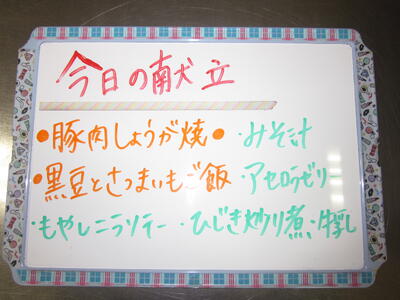 今日の献立
●豚肉しょうが焼● ・みそ汁
●黒豆とさつまいもご飯 ・アセロラゼリー
・もやしニラソテー ・ひじき炒り煮・牛乳